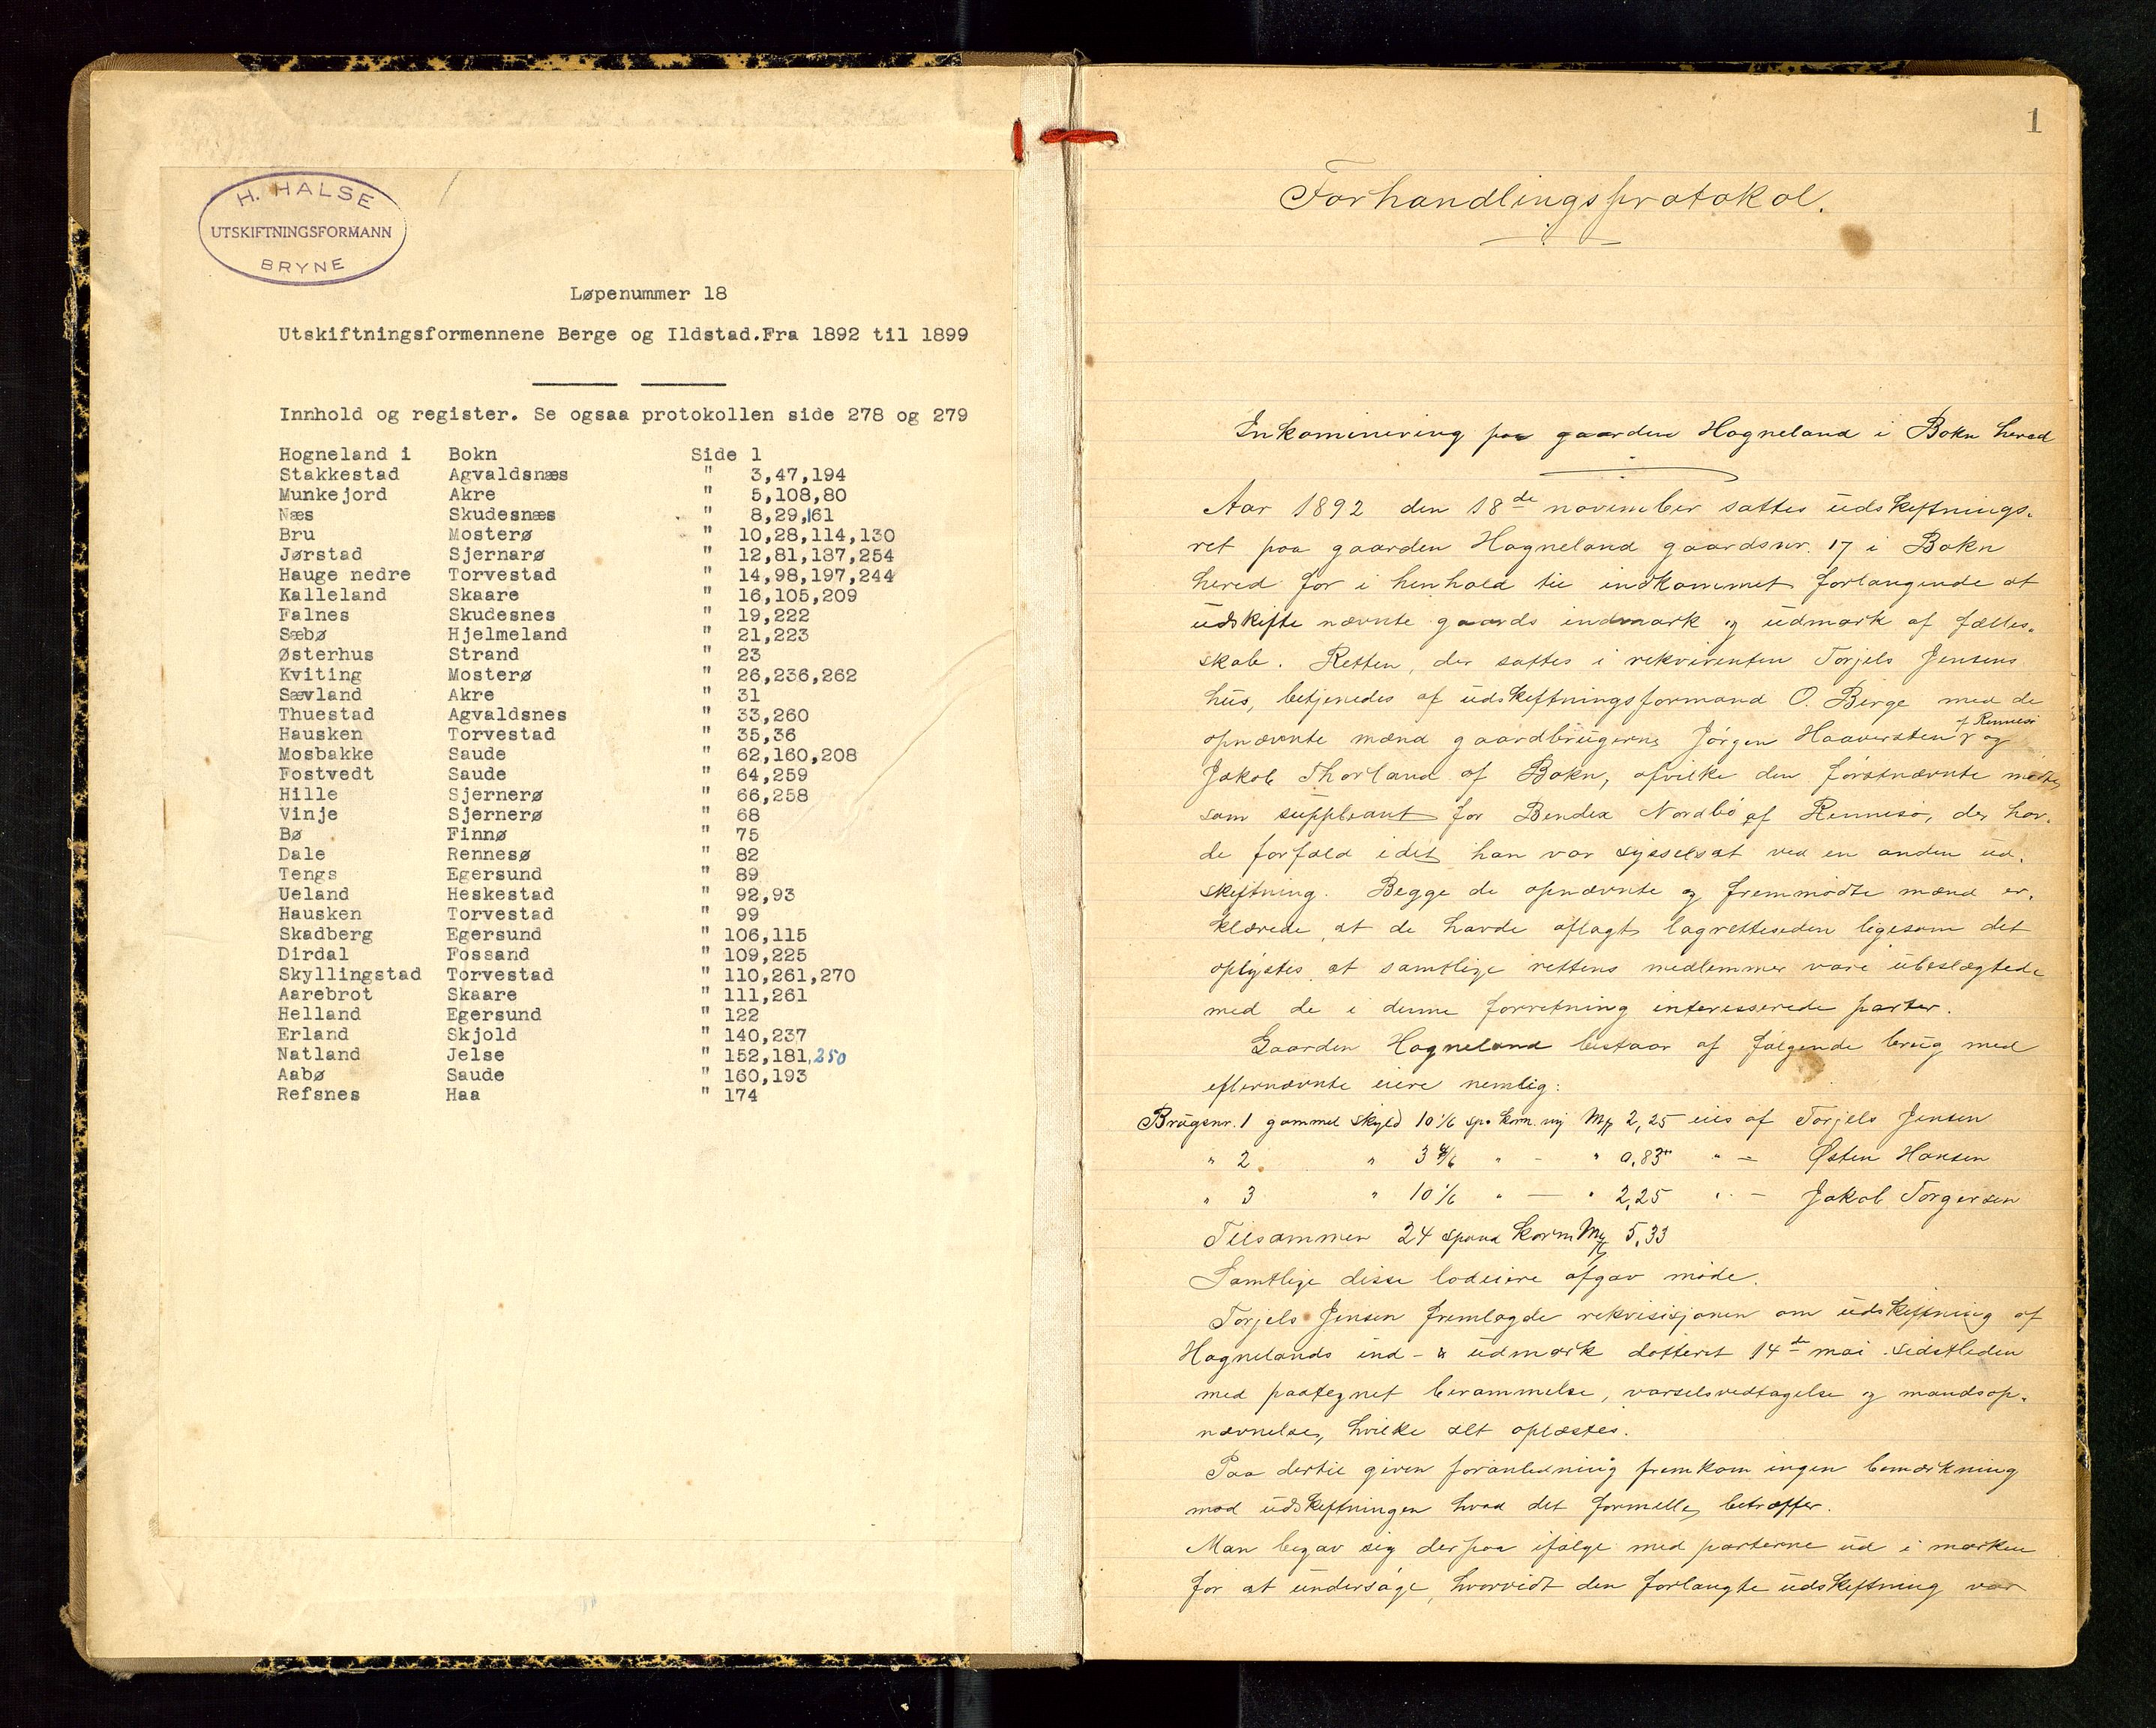 H. HALSE
UTSKIFTNINGSFORMANN
BRYNE
Løpenummer 18
Utskiftningsformennene Berge og Ildstad.Fra 1892 til 1899
Innhold og register. Se ogsaa protokollen side 278 og 279
Hogneland i Bokn Side 1
Stakkestad Agvaldsnæs " 3,47,194
Munkejord Akre " 5,108,80
Næs Skudesnæs " 8,29,161
Bru Mosterø " 10,28,114,130
Jørstad Sjernarø " 12,81,187,254
Hauge nedre Torvestad " 14,98,197,244
Kalleland Skaare " 16,105,209
Falnes Skudesnes " 19,222
Sæbø Hjelmeland " 21,223
Østerhus Strand " 23
Kviting Mosterø " 26,236,262
Sævland Akre " 31
Thuestad Agvaldsnes " 33,260
Hausken Torvestad " 35,36
Mosbakke Saude " 62,160,208
Fostvedt Saude " 64,259
Hille Sjernerø " 66,258
Vinje Sjernerø " 68
Bø Finnø " 75
Dale Rennesø " 82
Tengs Egersund " 89
Ueland Heskestad " 92,93
Hausken Torvestad " 99
Skadberg Egersund " 106,115
Dirdal Fossand " 109,225
Skyllingstad Torvestad " 110,261,270
Aarebrot Skaare " 111,261
Helland Egersund " 122
Erland Skjold " 140,237
Natland Jelse " 152,181,250
Aabø Saude " 160,193
Refsnes Haa " 174
1
Forhandlingsprotokol.
Inkaminering paa gaarden Hogneland i Bokn herad
Aar 1892 den 18de november sattes udskiftnings-
ret paa gaarden Hogneland gaardsnr. 17 i Bokn
hered for i henhold til indkommet forlangende at
udskifte nævnte gaards indmark og udmark af fælles-
skab. Retten, der sattes i rekvirenten Torjels Jensens
hus, betjenedes af udskiftningsformand O. Berge med de
opnævnte mænd gaardbrugerne Jørgen Haaversten af Rennesø og
Jakob Thorland af Bokn, afvilke den førstnævnte mødte
som suppleant for Bendix Nordbø af Rennesø, der hav-
de forfald idet han var sysselsat ved en anden ud-
skiftning. Begge de opnævnte og fremmødte mænd er-
klærede, at de havde aflagt lagretteseden ligesom det
oplystes at samtlige rettens medlemmer vare ubeslægtede
med de i denne forretning interesserede parter.
Gaarden Hogneland bestaar af følgende brug med
efternævnte eiere nemlig:
Brugsnr. 1 gammel skyld 10 1/6 sp. korn. ny Mk 2,25 eies af Torjels Jensen
" 2 " 3 4/6 " - " 0,83 " - Østen Hansen
" 3 " 10 1/6 " — " 2,25 " - Jakob Torgersen
Tilsammen 24 spand korn Mk 5,33
Samtlige disse lodeiere afgav møde.
Torjels Jensen fremlagde rekvisisjonen om udskiftning af
Hognelands ind- & udmark datteret 14de mai sidstleden
med paategnet berammelse, varselsvedtagelse og mandsop-
nævnelse, hvilke alt oplæstes.
Paa dertil given foranledning fremkom ingen bemærkning
mod udskiftningen hvad det formelle betræffer.
Man begav sig derpaa ifølge med parterne ud i marken
for at undersøge, hvorvidt den forlangte udskiftning var